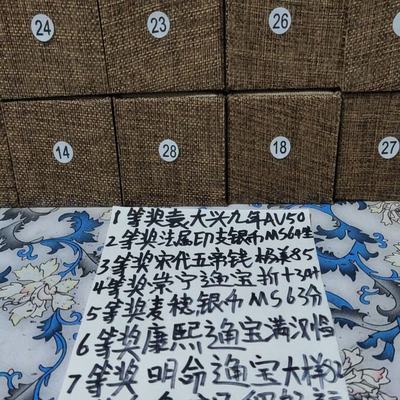 24 23 26
14 28 18 27
1等奖袁大头九年AU50
2等奖法属印支银币MS64坐
3等奖宋代五帝钱 极美85
4等奖崇宁通宝折十
5等奖麦穗银币MS63分
6等奖康熙通宝满汉
7等奖明命通宝大样82